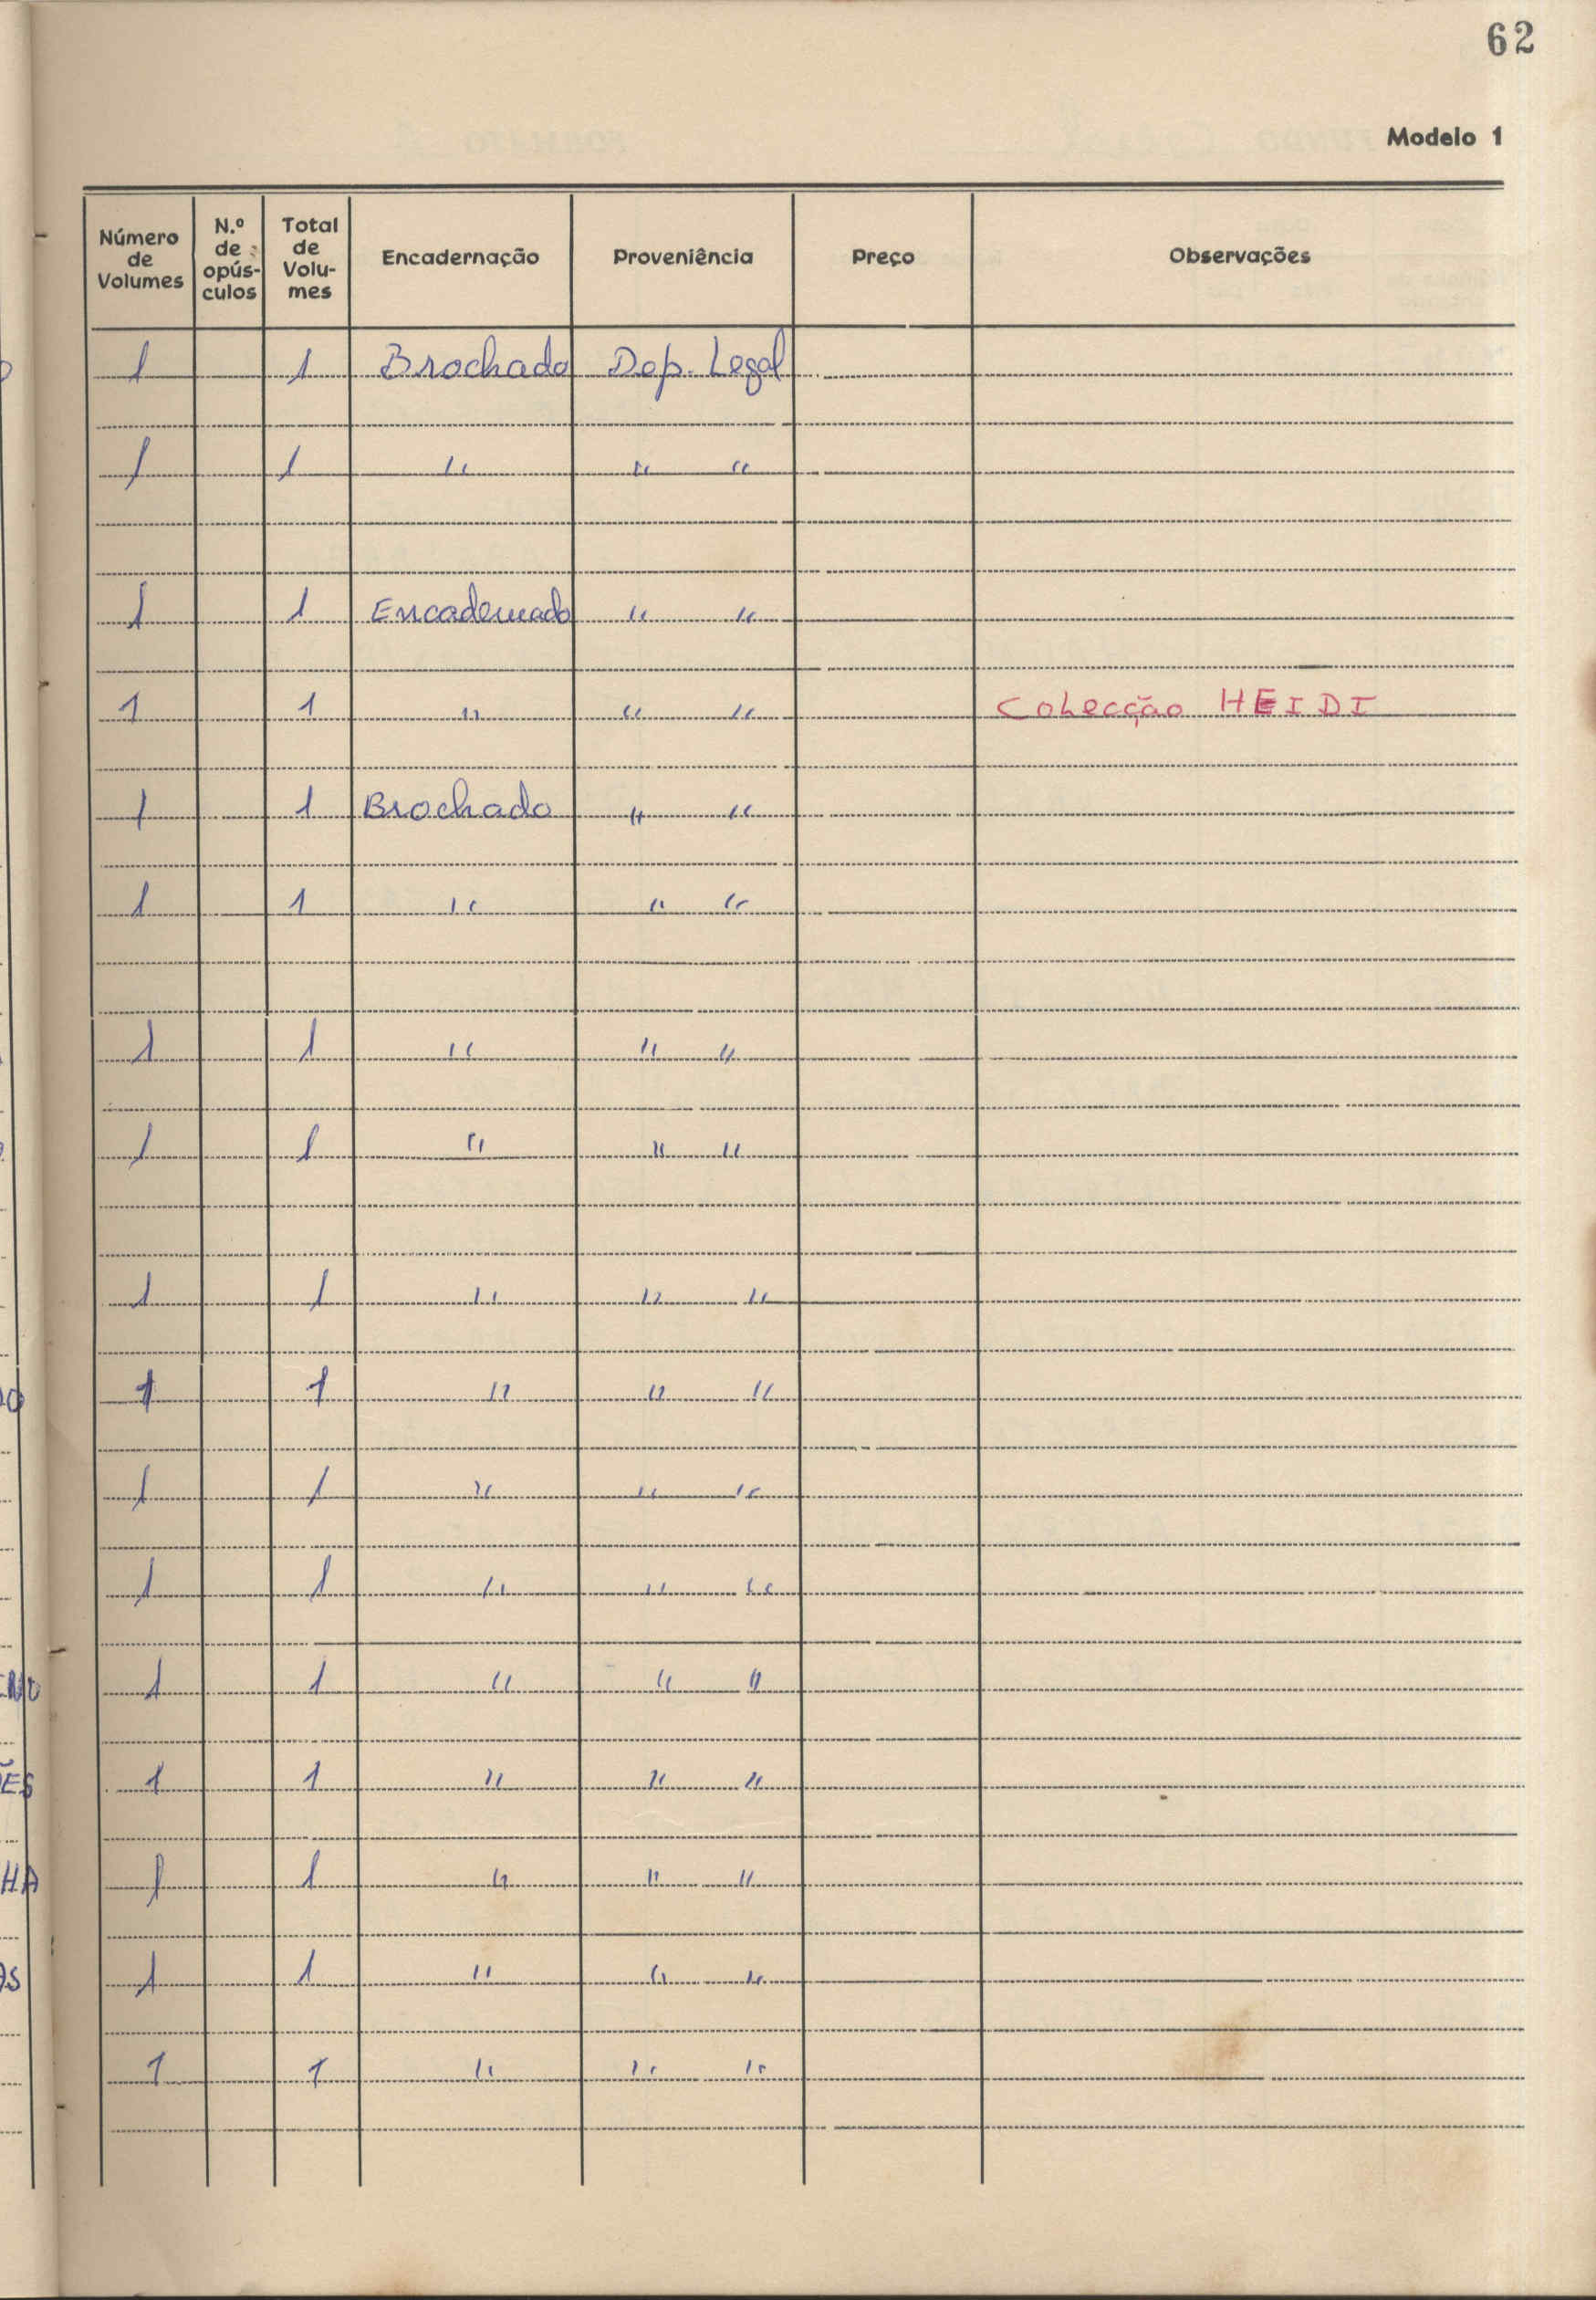 62
Modelo 1
Número de Volumes N.º de opús-culos Total de Volu-mes Encadernação Proveniência Preço Observações
1 1 Brochado Dep. Legal
1 1 " " "
1 1 Encadernado " "
1 1 " " " Colecção HEIDI
1 1 Brochado " "
1 1 " " "
1 1 " " "
1 1 " " "
1 1 " " "
1 1 " " "
1 1 " " "
1 1 " " "
1 1 " " "
1 1 " " "
1 1 " " "
1 1 " " "
1 1 " " "